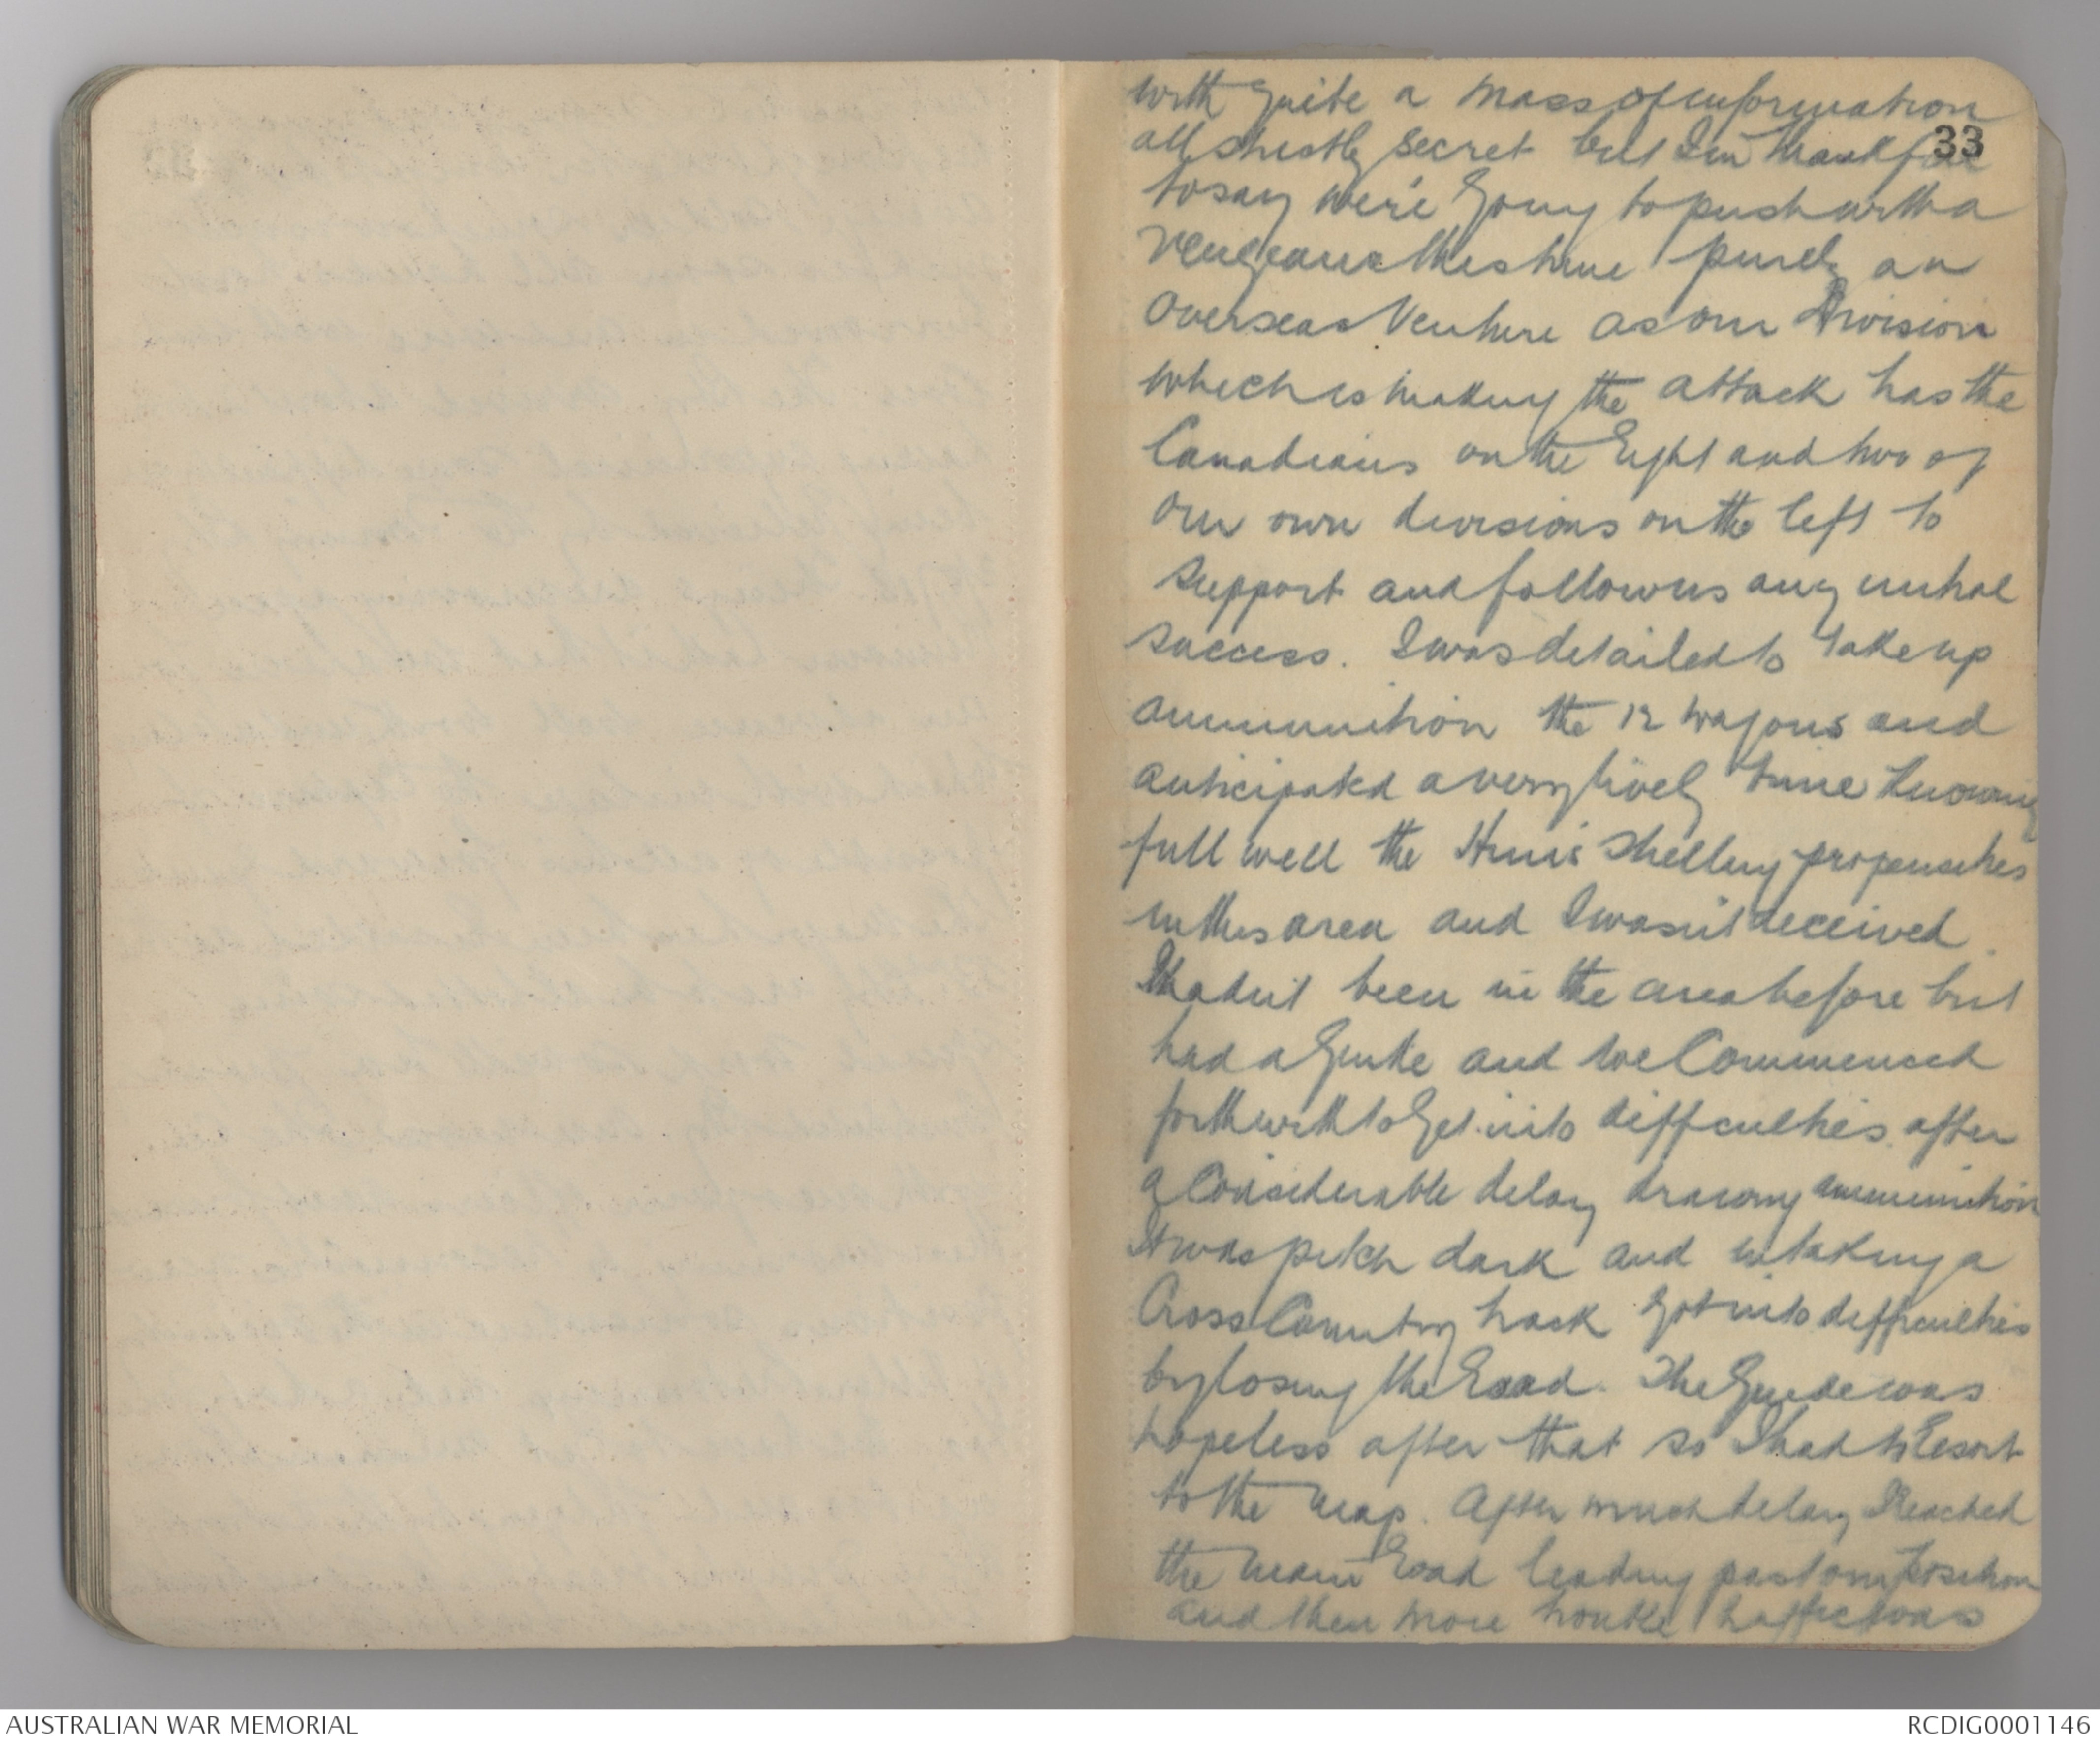 with quite a mass of information
33
all strictly secret but I'm thankful
to say we're going to push with a
vengeance this time purely an
overseas venture as our Division
which is making the attack has the
Canadians on the right and two of
our own divisions on the left to
support and follow us any initial
success. I was detailed to take up
ammunition the 12 wagons and
anticipated a very lively time knowing
full well the Huns shelling propensities
in this area and I wasn't deceived.
I hadn't been in the area before but
had a guide and we commenced
forthwith to get into difficulties after
a considerable delay drawing ammunition
It was pitch dark and in taking a
cross country track got into difficulties
by losing the road. The guide was
hopeless after that so I had to resort
to the map. After much delay I reached
the main road leading past our position
and then more trouble traffic was
AUSTRALIAN WAR MEMORIAL
RCDIG0001146